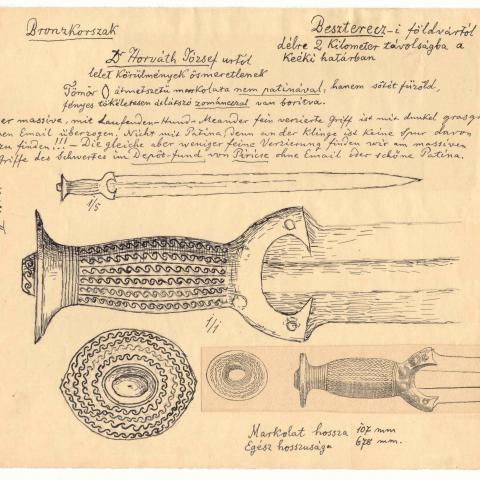 Bronzkorszak
Beszterecz-i földvártól
délre 2 Kilometer távolságba a
Kéèki határban
Dr Horváth József urtól
lelet Körülmények ösmeretlenek
Tömör átmetszetü markolata nem patinával, hanem sötét füzöld,
fényes tökéletesen átlátszó zománczal van borítva.
er massive, mit Laufenden-Hund-Meander fein verzierte Griff ist mit dunkel grasgr
en Email überzogen! Nicht mit Patina, denn an der Klinge ist Keine Spur davon
zu finden!!! — Die gleiche aber weniger feine Verzierung finden wir am massiven
Griffe des Schwertes im Depôt-fund von Pèricse ohne Email oder schöne Patina.
1/5
1/1
Markolat hossza 107 mm
Egész hosszusága 678 mm.